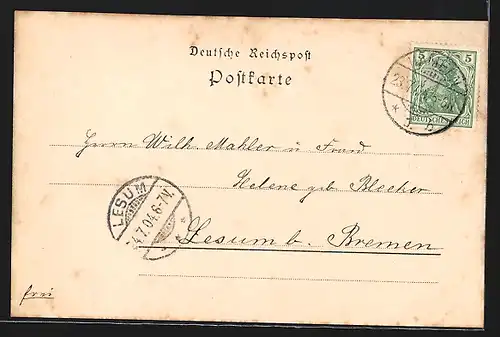 Deutsche Reichspost
Postkarte
5 5
Herrn Wilh. Mahler u. Frau
Helene geb. Blecher
Lesum b. Bremen
LESUM
4.7.04.6-7N.
frei